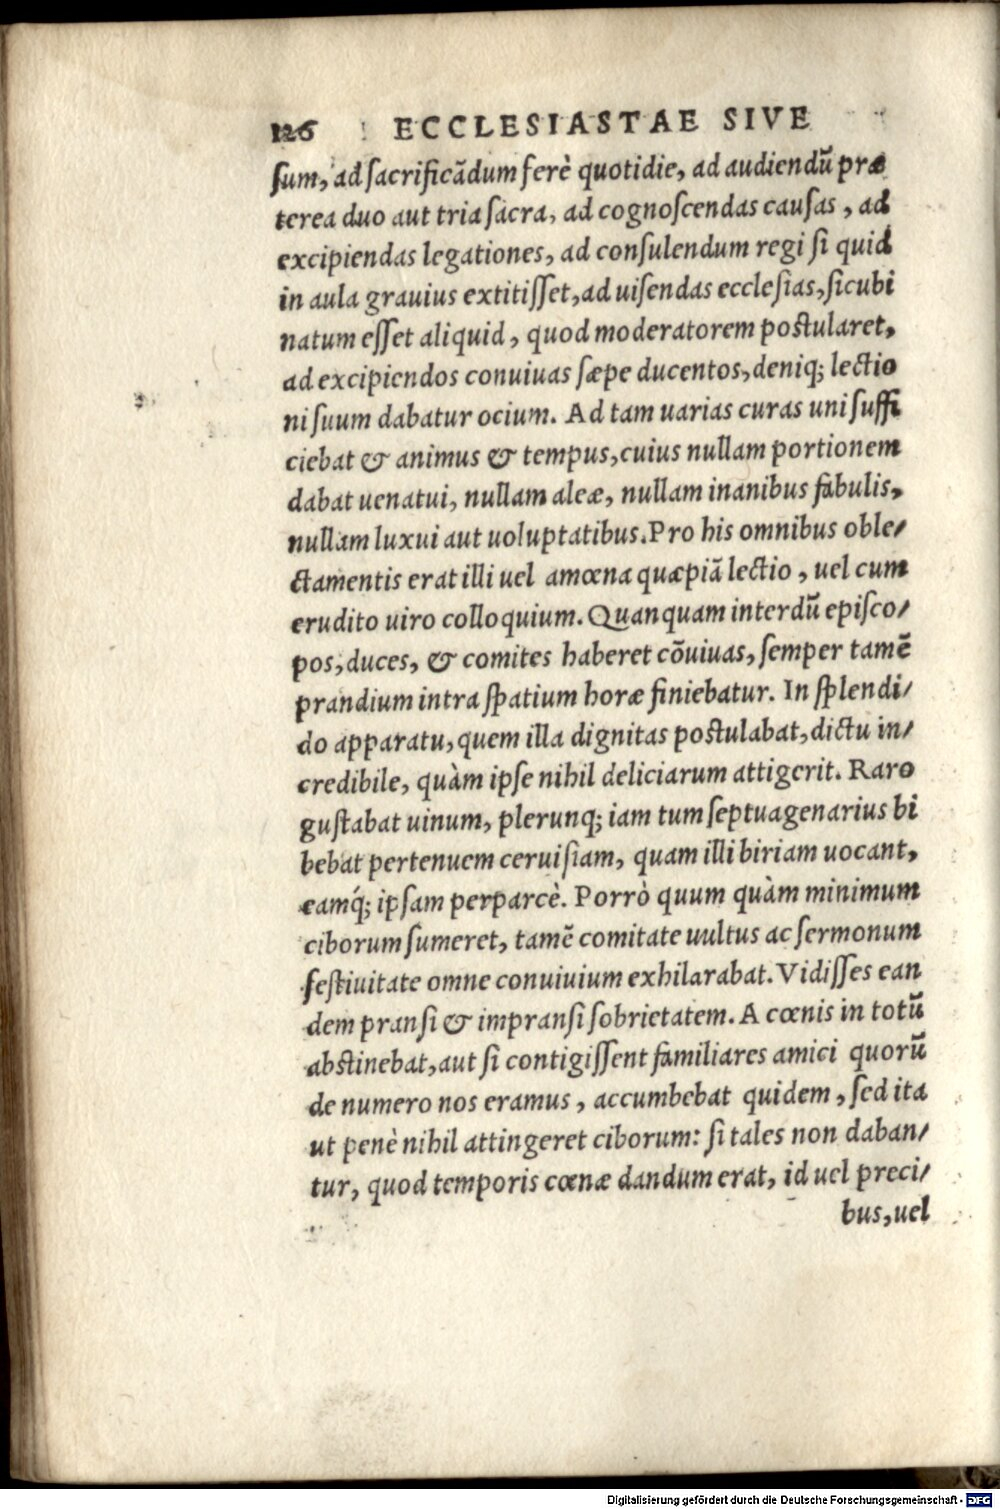 126 ECCLESIASTAE SIVE
ſum, ad ſacrificãdum ferè quotidie, ad audiendũ præ
terea duo aut tria ſacra, ad cognoſcendas cauſas, ad
excipiendas legationes, ad conſulendum regi ſi quid
in aula grauius extitiſſet, ad uiſendas eccleſias, ſicubi
natum eſſet aliquid, quod moderatorem poſtularet,
ad excipiendos conuiuas ſæpe ducentos, deniq; lectio
ni ſuum dabatur ocium. Ad tam uarias curas uni ſuffi
ciebat & animus & tempus, cuius nullam portionem
dabat uenatui, nullam aleæ, nullam inanibus fabulis,
nullam luxui aut uoluptatibus. Pro his omnibus oble/
ctamentis erat illi uel amœna quæpiã lectio, uel cum
erudito uiro colloquium. Quanquam interdũ epiſco/
pos, duces, & comites haberet cõuiuas, ſemper tamẽ
prandium intra ſpatium horæ finiebatur. In ſplendi/
do apparatu, quem illa dignitas poſtulabat, dictu in/
credibile, quàm ipſe nihil deliciarum attigerit. Raro
guſtabat uinum, plerunq; iam tum ſeptuagenarius bi
bebat pertenuem ceruiſiam, quam illi biriam uocant,
eamq́; ipſam perparcè. Porrò quum quàm minimum
ciborum ſumeret, tamẽ comitate uultus ac ſermonum
feſtiuitate omne conuiuium exhilarabat. Vidiſſes ean
dem pranſi & impranſi ſobrietatem. A cœnis in totũ
abſtinebat, aut ſi contigiſſent familiares amici quorũ
de numero nos eramus, accumbebat quidem, ſed ita
ut penè nihil attingeret ciborum: ſi tales non daban/
tur, quod temporis cœnæ dandum erat, id uel preci/
bus, uel
Digitalisierung gefördert durch die Deutsche Forschungsgemeinschaft - DFG